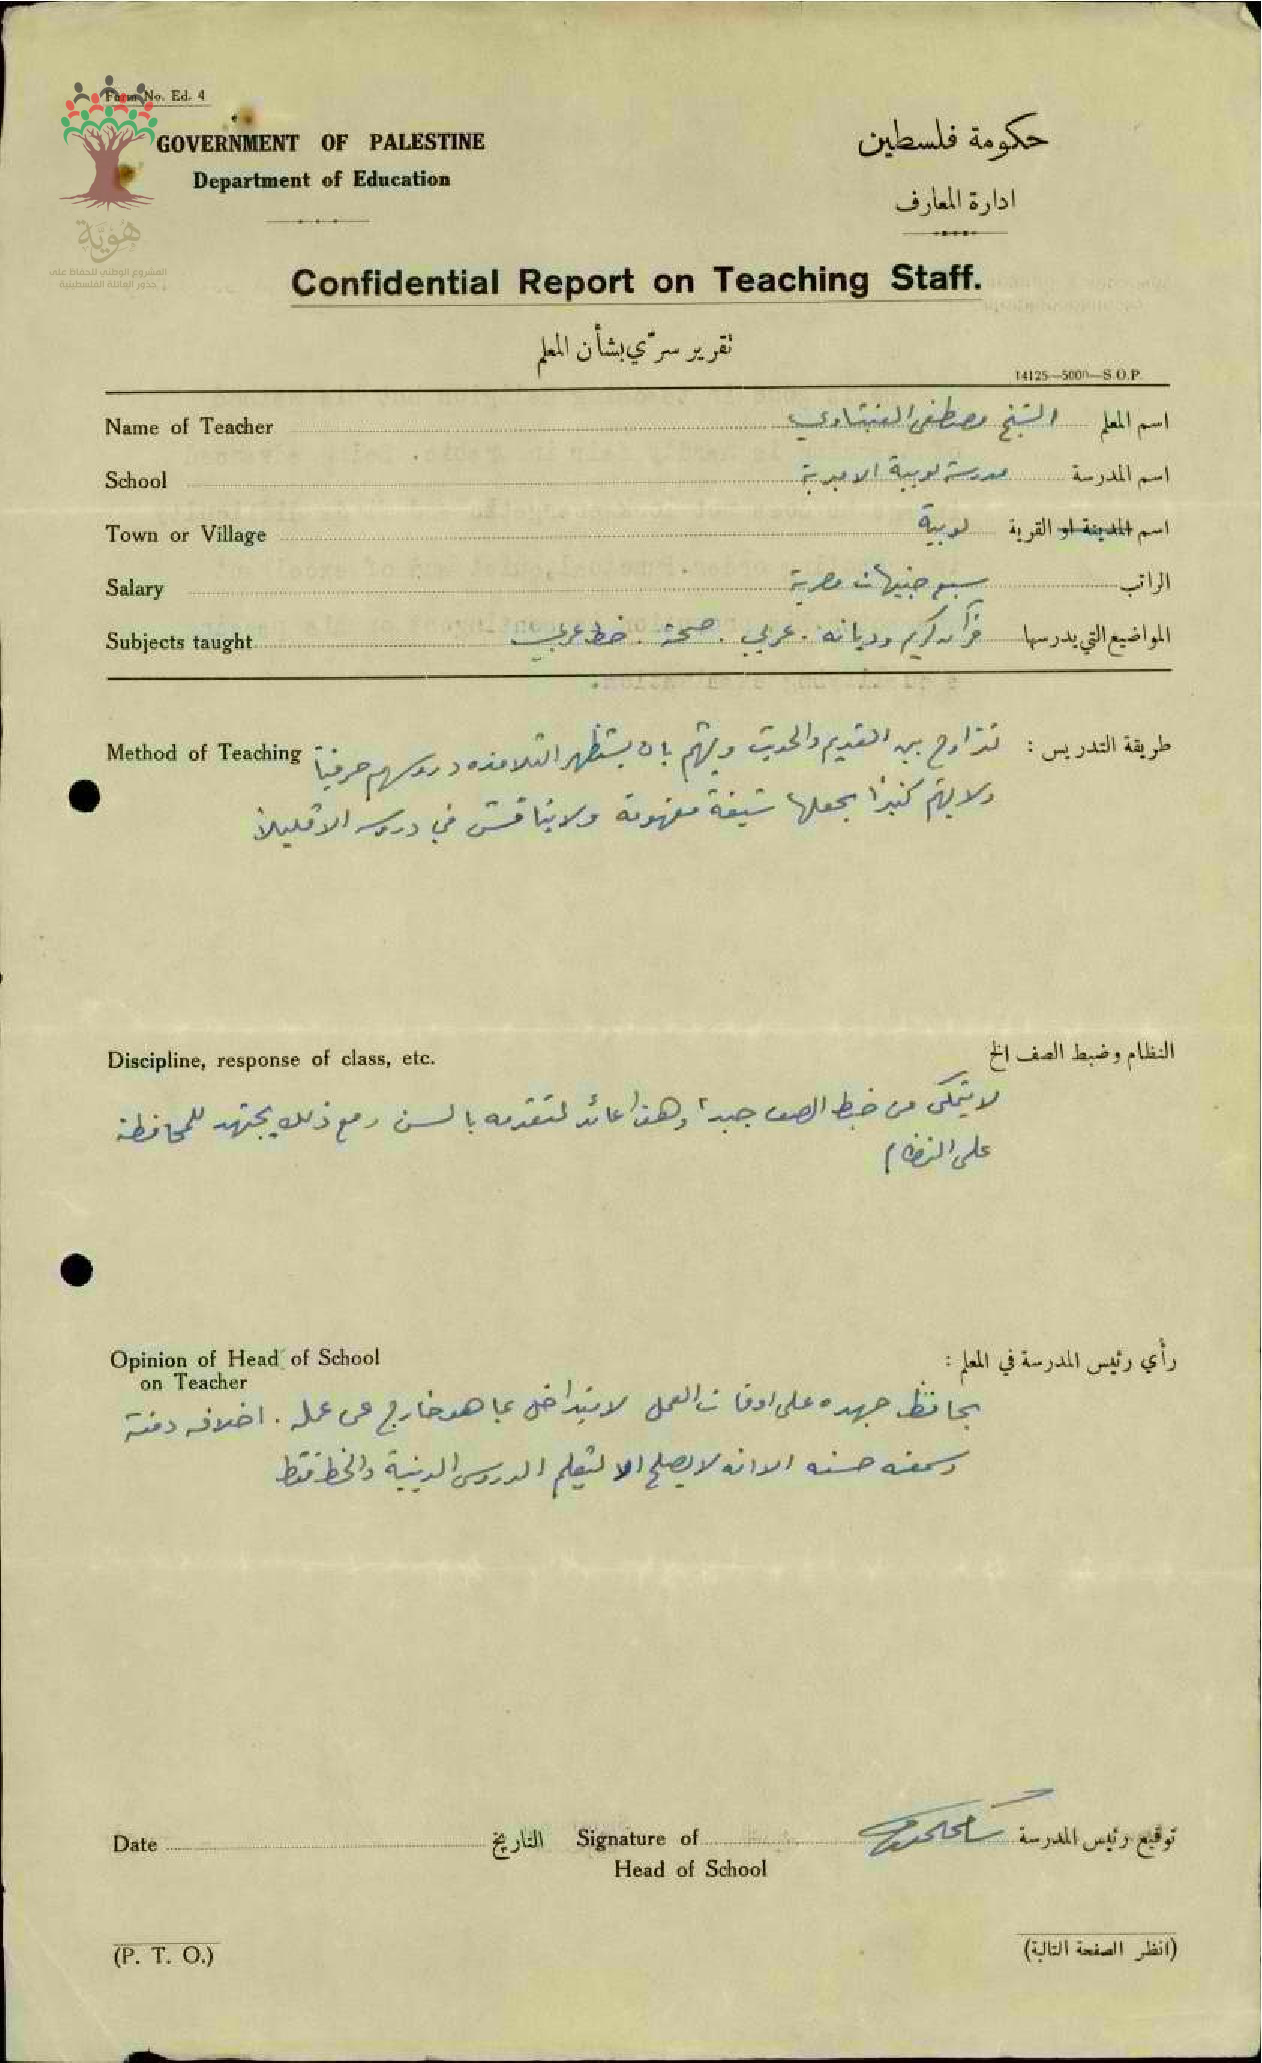 Form No. Ed. 4
GOVERNMENT OF PALESTINE
Department of Education
حكومة فلسطين
ادارة المعارف
هُوِيَّة
المشروع الوطني للحفاظ على
جذور العائلة الفلسطينية
Confidential Report on Teaching Staff.
تقرير سرّي بشأن المعلم
14125—5000—S.O.P.
Name of Teacher الشيخ مصطفى اسم المعلم
School مدرسة لوبية الاميرية اسم المدرسة
Town or Village لوبية اسم المدينة او القرية
Salary سبع جنيهات مصرية الراتب
Subjects taught قرآن كريم وديانه . عربي . صحة . خط عربي المواضيع التي يدرسها
Method of Teaching طريقة التدريس :
تتراوح بين القديم والحديث ويهتم بان يستظهر التلامذه دروسهم حرفياً
ولا يهتم كثيراً بجعلها شيقة مفهومة ولا يناقش في دروسه الا قليلاً
Discipline, response of class, etc. النظام وضبط الصف الخ
لا يتمكن من ضبط الصف جيداً وهذا عائد لتقدمه بالسن ومع ذلك يجتهد للمحافظة
على النظام
Opinion of Head of School رأي رئيس المدرسة في المعلم :
on Teacher
يحافظ جهده على اوقات العمل لا يتداخل بما هو خارج عن عمله . اخلاقه
وسمعته حسنه الا انه لا يصلح الا لتعليم الدروس الدينية والخط فقط
Date التاريخ Signature of توقيع رئيس المدرسة
Head of School
(P. T. O.) (انظر الصفحة التالية)